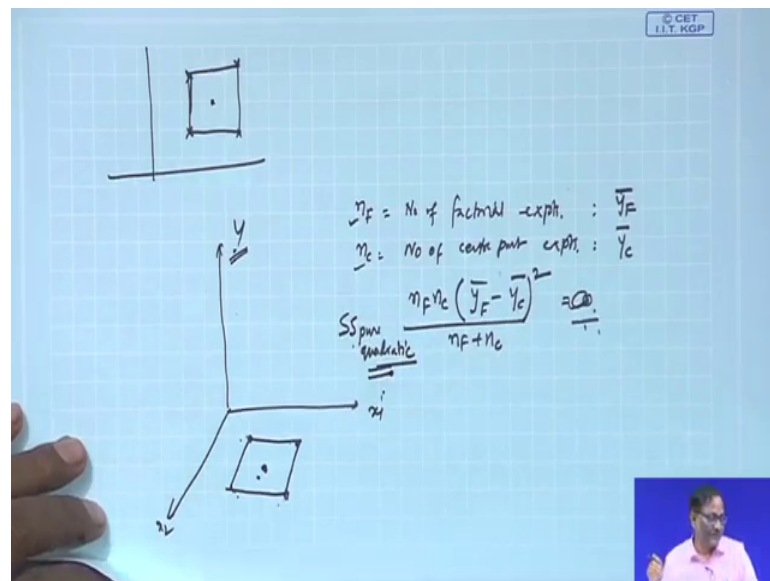 © CET
I.I.T. KGP
n_F = No of factorial expts. : \bar{y}_F
n_c = No of centre point expts. : \bar{y}_c
SS pure quadratic \frac{n_F n_c (\bar{y}_F - \bar{y}_c)^2}{n_F + n_c} =
y
x_1
x_2